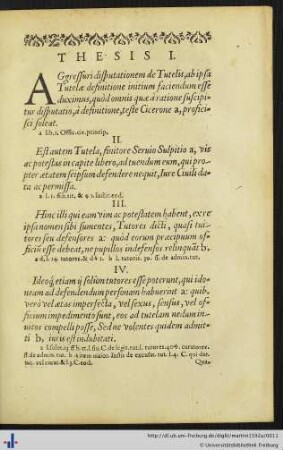 THESIS I.
AGgressuri disputationem de Tutelis, ab ipsa
Tutelæ definitione initium faciendum esse
duximus, quòd omnis quæ à ratione suscipi-
tur disputatio, à definitione, teste Cicerone a, profici-
sci soleat.
a lib. 1. Offic. in princip.
II.
Est autem Tutela, finitore Seruio Sulpitio a, vis
ac potestas in capite libero, ad tuendum eum, qui pro-
pter ætatem seipsum defendere nequit, Iure Ciuili da-
ta ac permissa.
a l. 1. ff. & §. 1. Inst. eod.
III.
Hinc illi qui eam vim ac potestatem habent, ex re
ipsa nomen sibi sumentes, Tutores dicti, quasi tui-
tores seu defensores a: quòd eorum præcipuum of-
ficiũ esse debeat, ne pupillos indefensos relinquãt b.
tutores. & de admin. tut.
IV.
Ideoq́; etiam ij solùm tutores esse poterunt, qui ido-
neam ad defendendum personam habuerint a: quib.
verò vel ætas imperfecta, vel sexus, sensus, vel of-
ficium impedimento sunt, eos ad tutelam nedum in-
uitos compelli posse, Sed ne volentes quidem admit-
ti b, iuris est indubitati.
de legit. tut. l. tutores. curatores.
de admin. tut. b Inst. de excusat. tut. l. 4. C. qui dar.
tut. vel eod.
Qua-
http://dl.ub.uni-freiburg.de/diglit/martini1592a/0011
© Universitätsbibliothek Freiburg